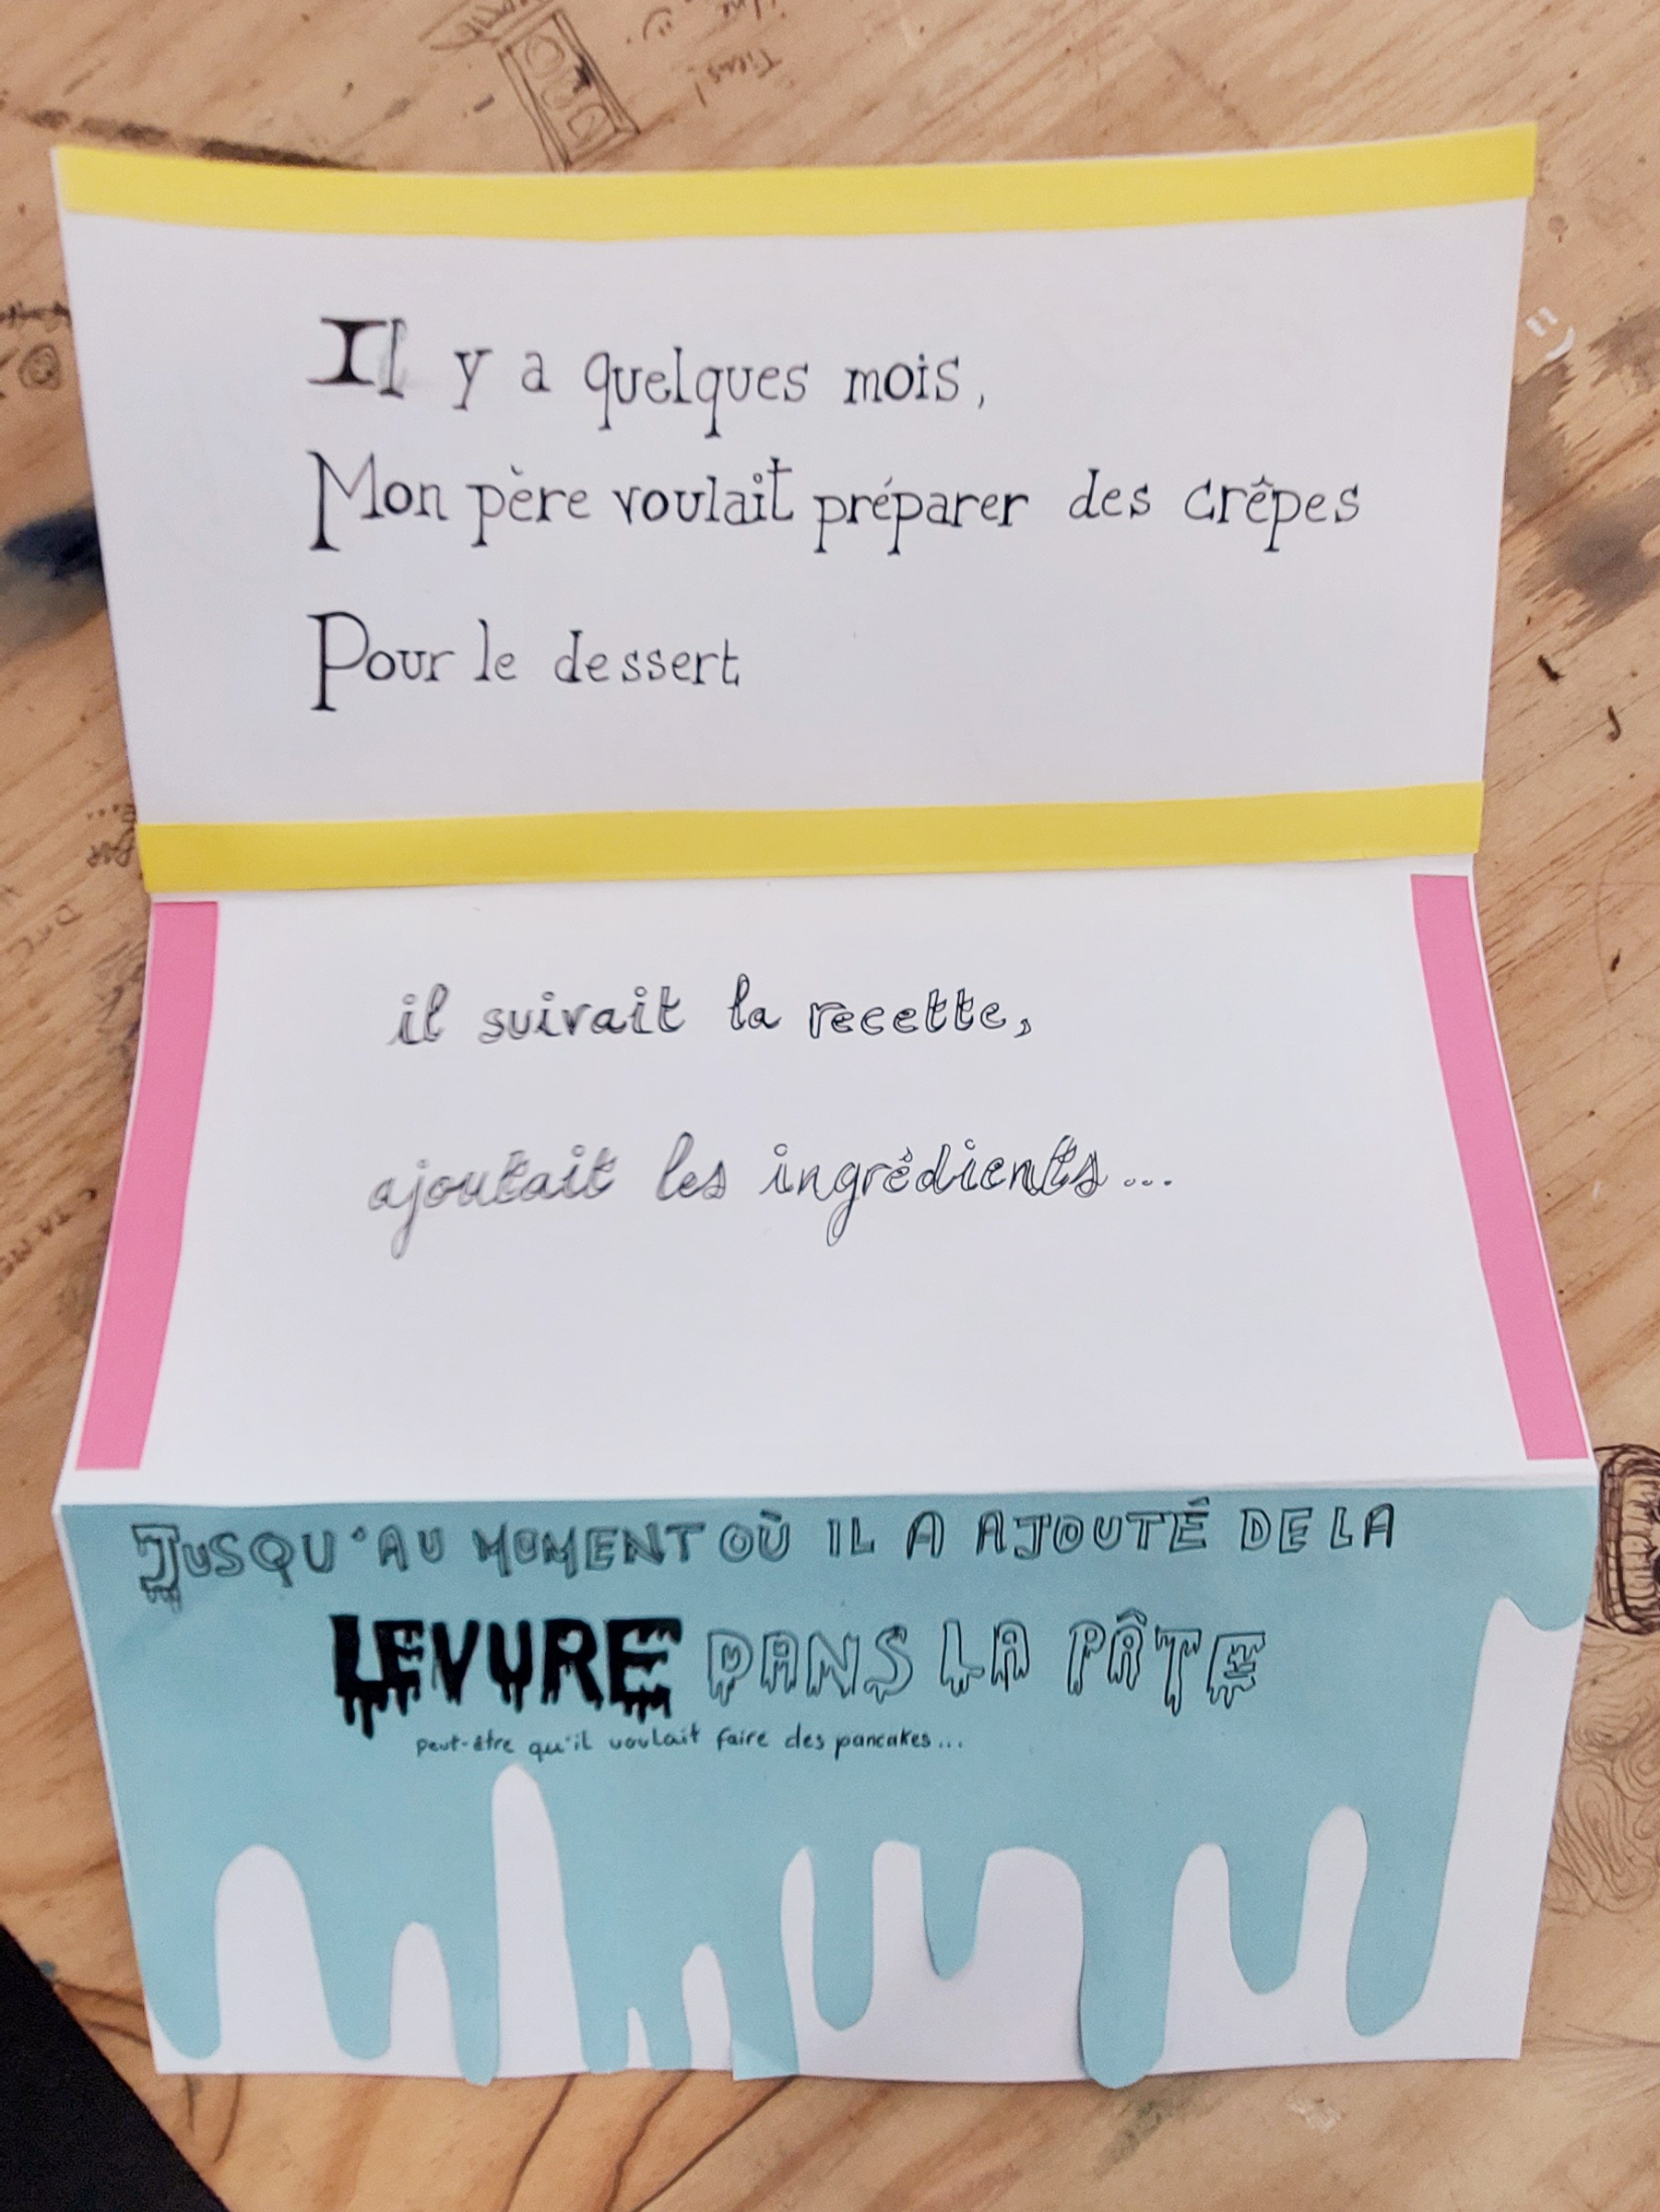 Il y a quelques mois,
Mon père voulait préparer des crêpes
Pour le dessert
il suivait la recette,
ajoutait les ingrédients...
JUSQU'AU MOMENT OÙ IL A AJOUTÉ DE LA
LEVURE DANS LA PÂTE
peut-être qu'il voulait faire des pancakes...
Tiens!